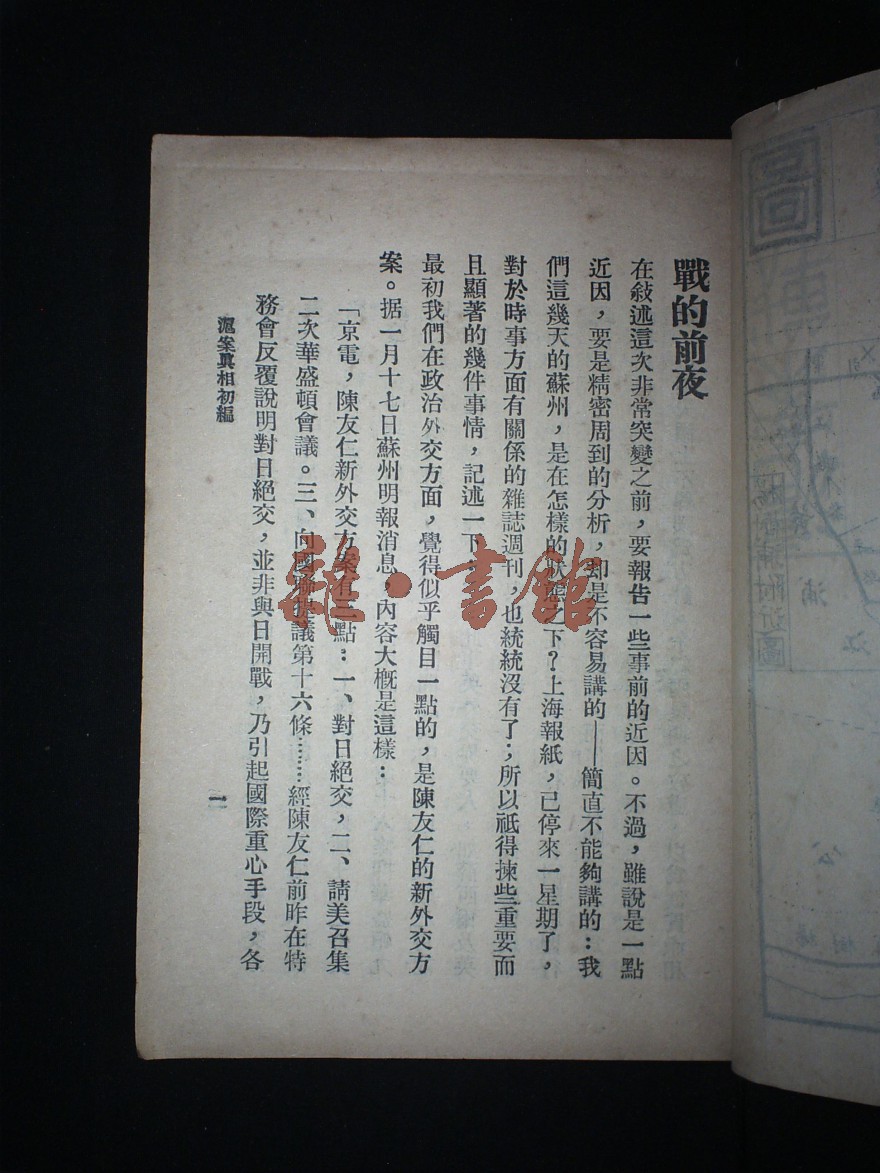 戰的前夜
在敍述這次非常突變之前，要報告一些事前的近因。不過，雖說是一點
近因，要是精密周到的分析，却是不容易講的——簡直不能夠講的：我
們這幾天的蘇州，是在怎樣的狀態之下？上海報紙，已停來一星期了，
對於時事方面有關係的雜誌週刊，也統統沒有了；所以祗得揀些重要而
且顯著的幾件事情，記述一下：
最初我們在政治外交方面，覺得似乎觸目一點的，是陳友仁的新外交方
案。据一月十七日蘇州明報消息，內容大概是這樣：
「京電，陳友仁新外交方案有三點：一、對日絕交，二、請美召集
二次華盛頓會議。三、向國聯提議第十六條……經陳友仁前昨在特
務會反覆說明對日絕交，並非與日開戰，乃引起國際重心手段，各
滬案眞相初編
一
雜·書館
圖
浦
江
附近圖